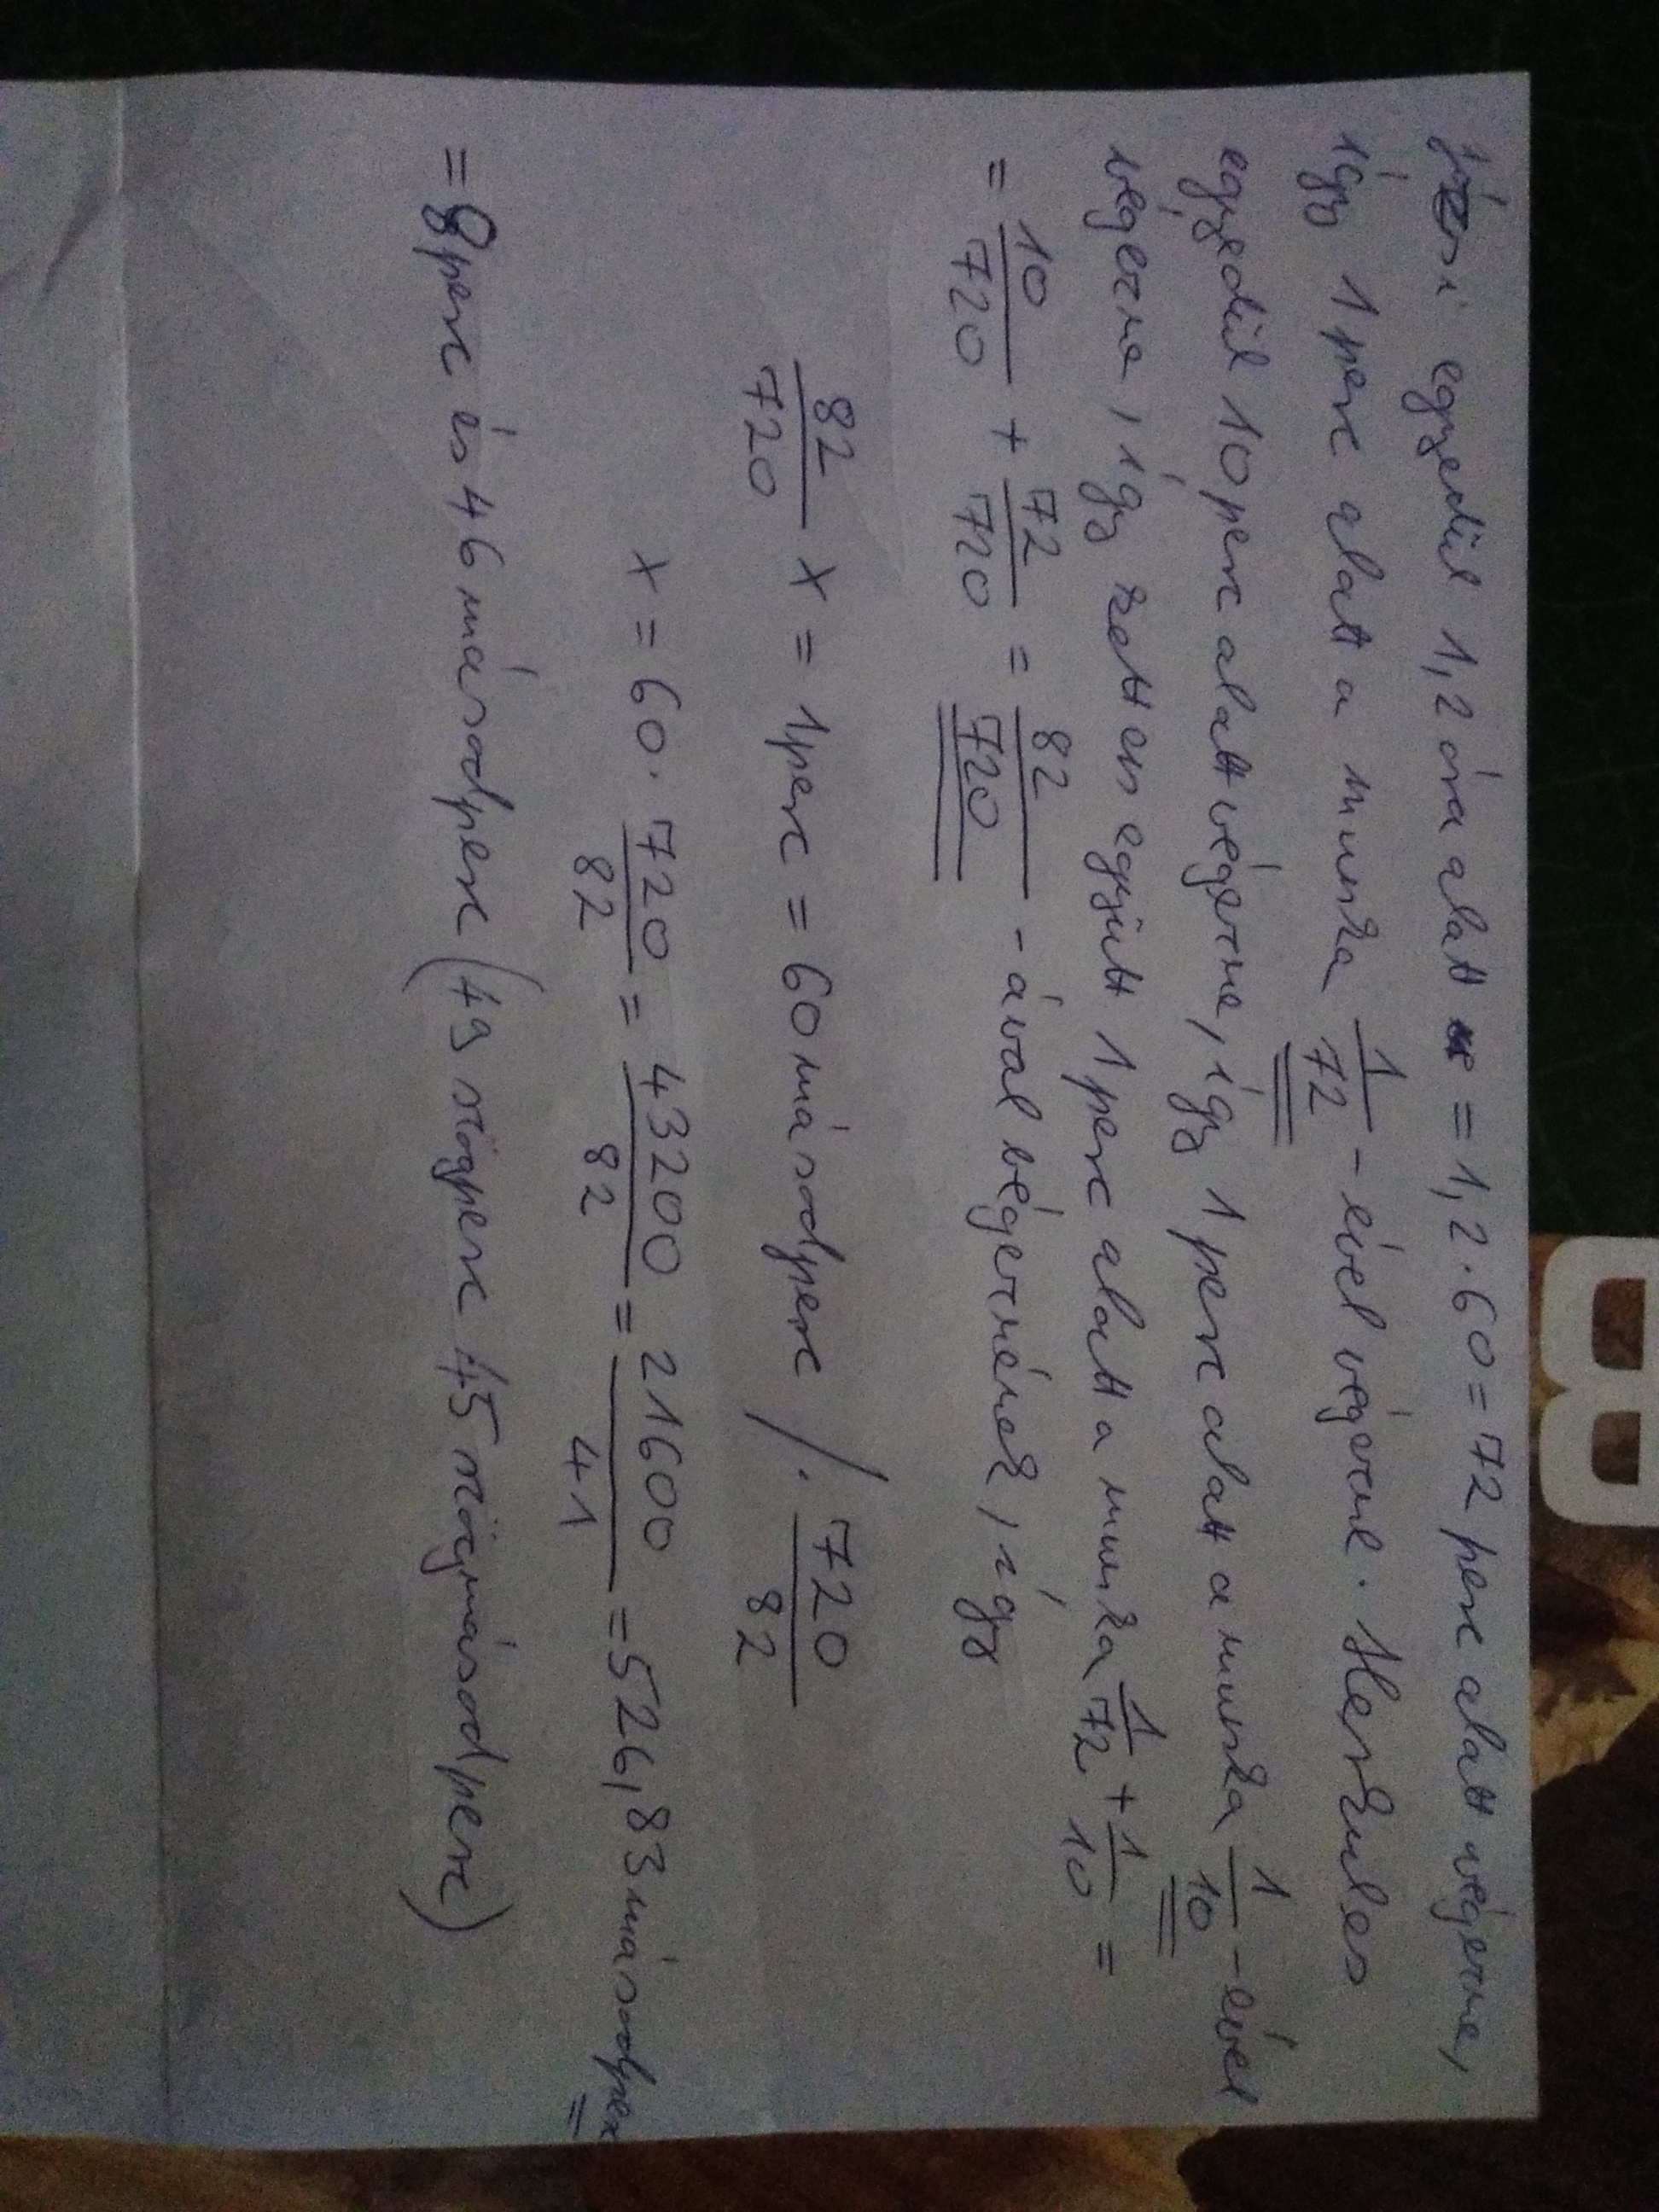 józsi egyedül 1,2 óra alatt = 1,2 · 60 = 72 perc alatt végezne,
így 1 perc alatt a munka 1/72 - ével végezne. Herkules
egyedül 10 perc alatt végezne, így 1 perc alatt a munka 1/10 - ével
végezne, így ketten együtt 1 perc alatt a munka 1/72 + 1/10 =
= 10/720 + 72/720 = 82/720 - ával végeznének, így
82/720 x = 1 perc = 60 másodperc /· 720/82
x = 60 · 720/82 = 43200/82 = 21600/41 = 526,83 másodperc
= 8 perc és 46 másodperc (49 szögperc 45 szögmásodperc)
8